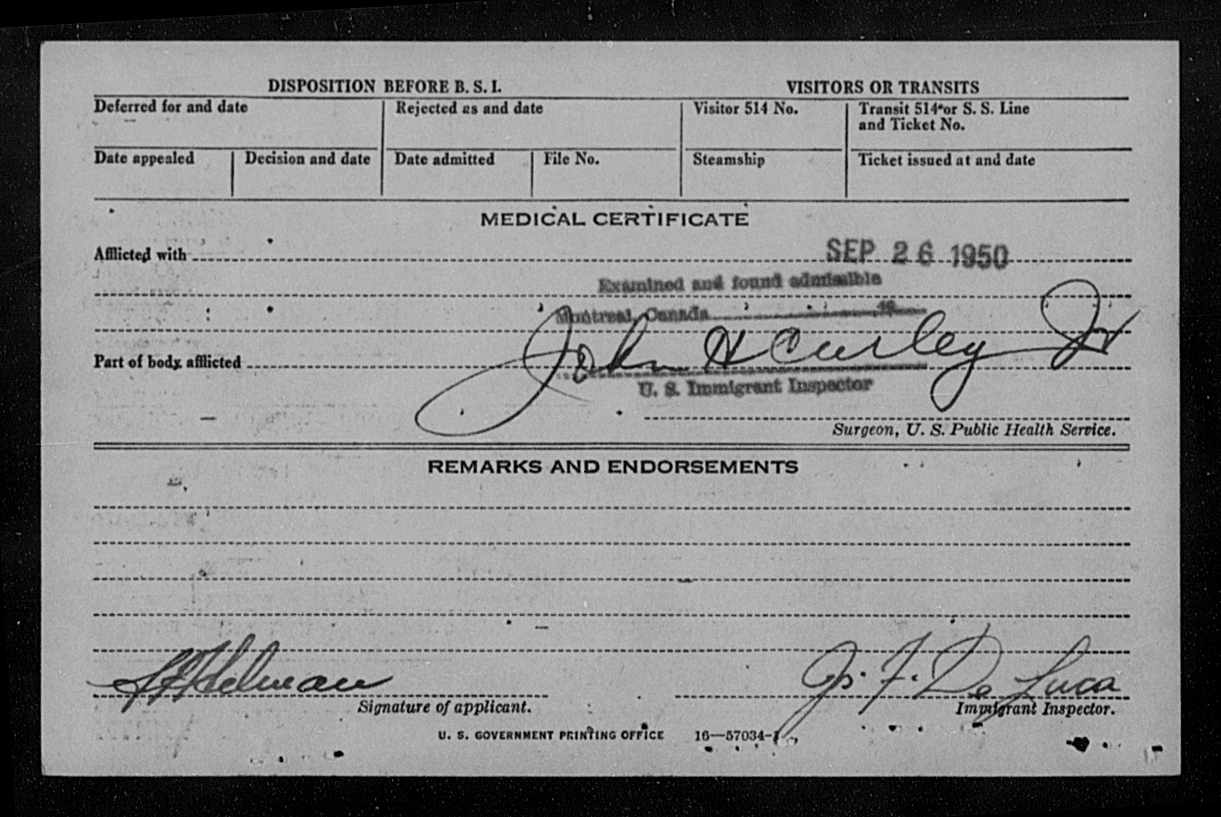 DISPOSITION BEFORE B. S. I. VISITORS OR TRANSITS
Deferred for and date Rejected as and date Visitor 514 No. Transit 514 or S. S. Line
and Ticket No.
Date appealed Decision and date Date admitted File No. Steamship Ticket issued at and date
MEDICAL CERTIFICATE
Afflicted with SEP 26 1950
Examined and found admissible
Montreal, Canada 19
John H Curley Jr
Part of body afflicted
U. S. Immigrant Inspector
Surgeon, U. S. Public Health Service.
REMARKS AND ENDORSEMENTS
Helman J. F. De Luca
Signature of applicant. Immigrant Inspector.
U. S. GOVERNMENT PRINTING OFFICE 16—57034-1